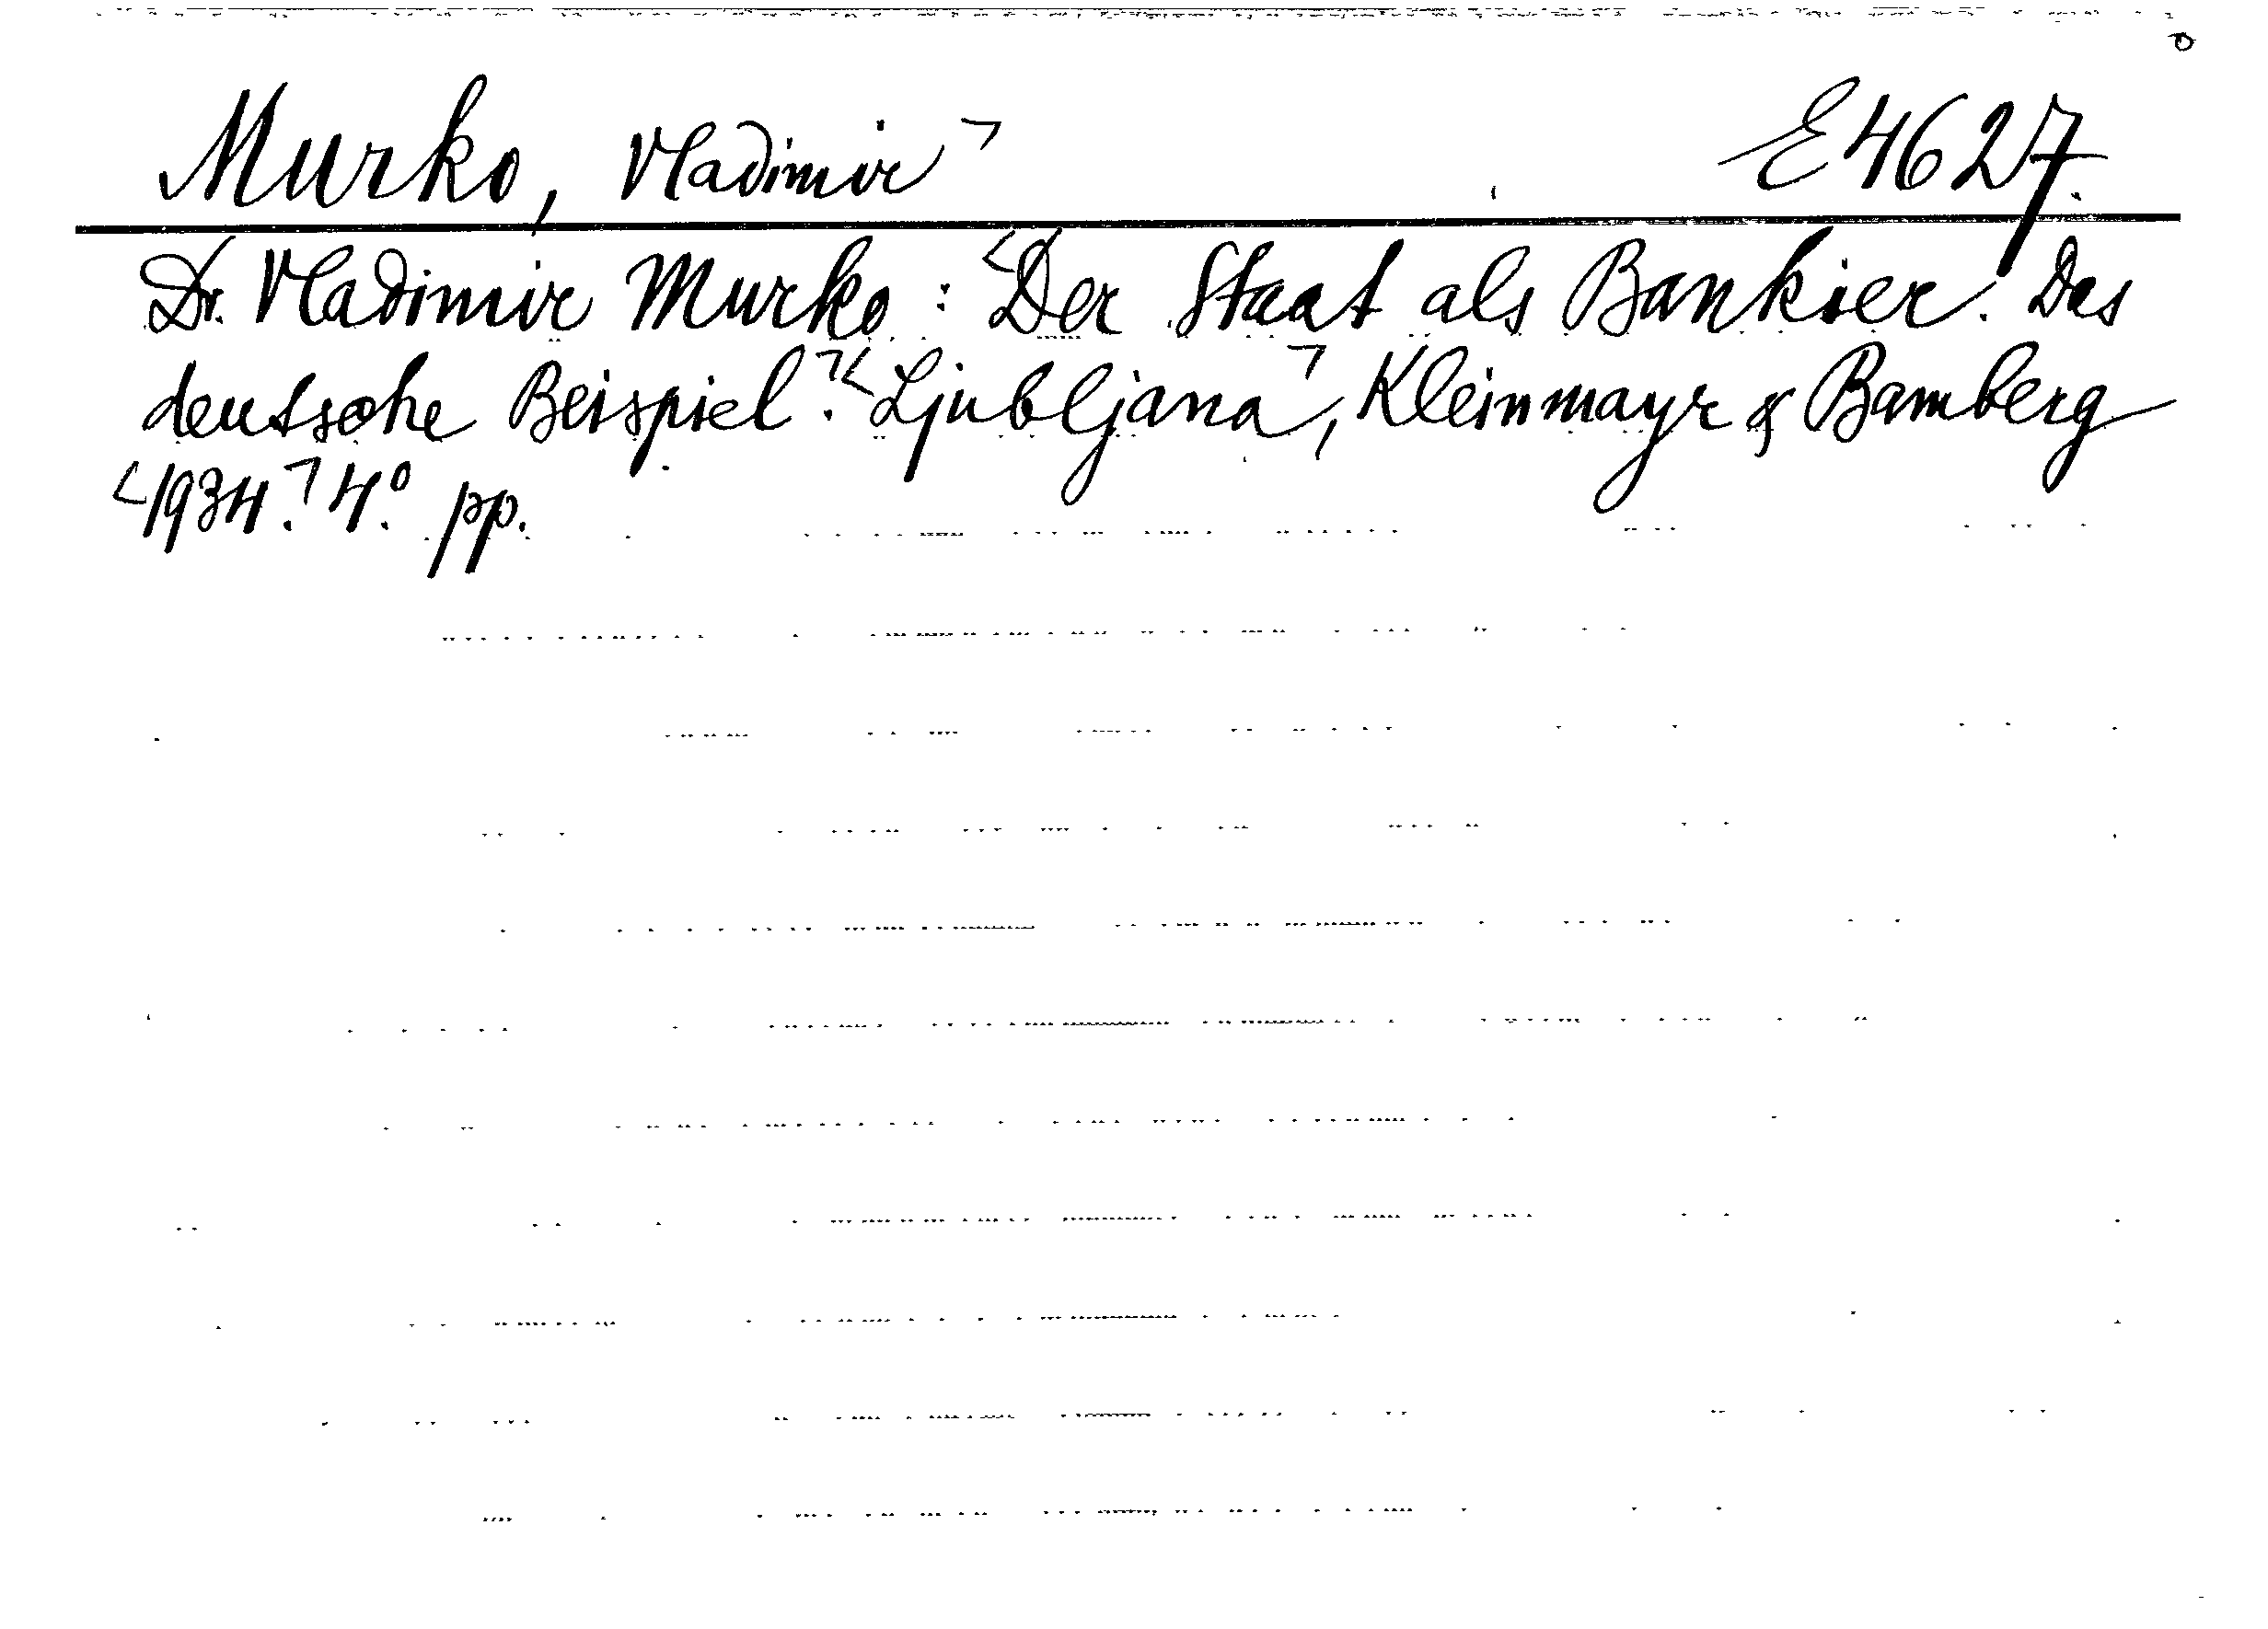 Murko, Vladimir ⌝ E 4627.
Dr. Vladimir Murko: <Der Staat als Bankier. Das
deutsche Beispiel.⌝ <Ljubljana⌝, Kleinmayr & Bamberg
<1934.⌝ 4.° pp.